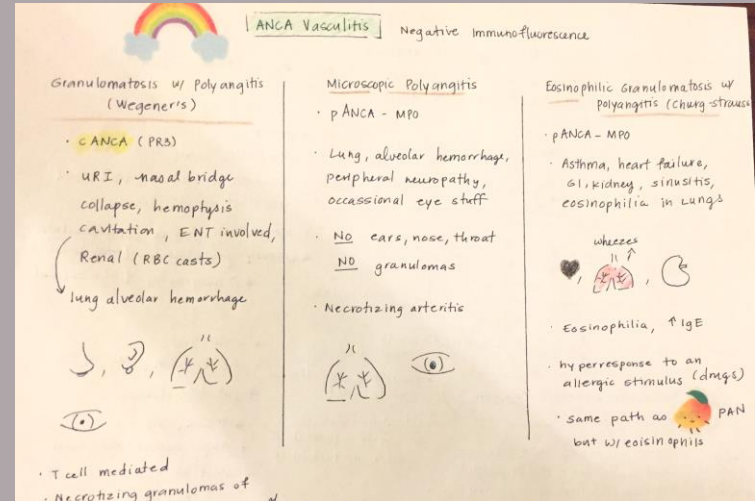 ANCA Vasculitis
Negative Immunofluorescence
Granulomatosis w/ Polyangitis
(Wegener's)
• cANCA (PR3)
• URI, nasal bridge
collapse, hemophysis
cavitation, ENT involved,
Renal (RBC casts)
lung alveolar hemorrhage
• T cell mediated
• Necrotizing granulomas of
Microscopic Polyangitis
• pANCA - MPO
• Lung, alveolar hemorrhage,
peripheral neuropathy,
occassional eye stuff
• NO ears, nose, throat
NO granulomas
• Necrotizing arteritis
Eosinophilic Granulomatosis w/
Polyangitis (Churg-strauss
• pANCA - MPO
• Asthma, heart failure,
GI, kidney, sinusitis,
eosinophilia in Lungs
wheezes
• Eosinophilia, ↑ IgE
• hyperresponse to an
allergic stimulus (drugs)
• same path as PAN
but w/ eoisinophils